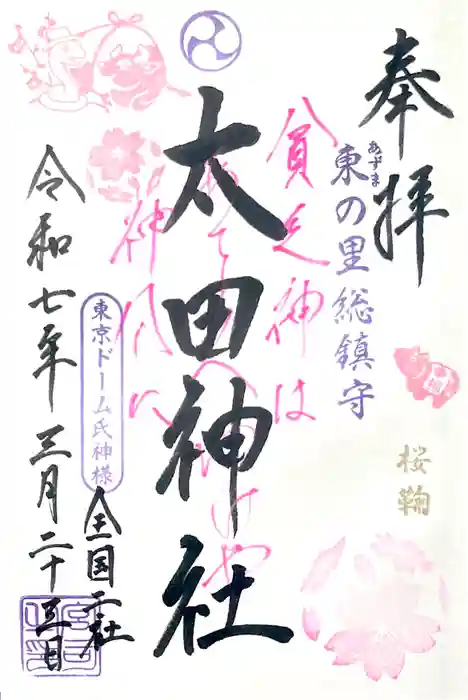 奉拝
東の里総鎮守
あずま
桜鞠
貧乏神は
太田神社
神様に
東京ドーム氏神様
全国一社
令和七年三月二十三日